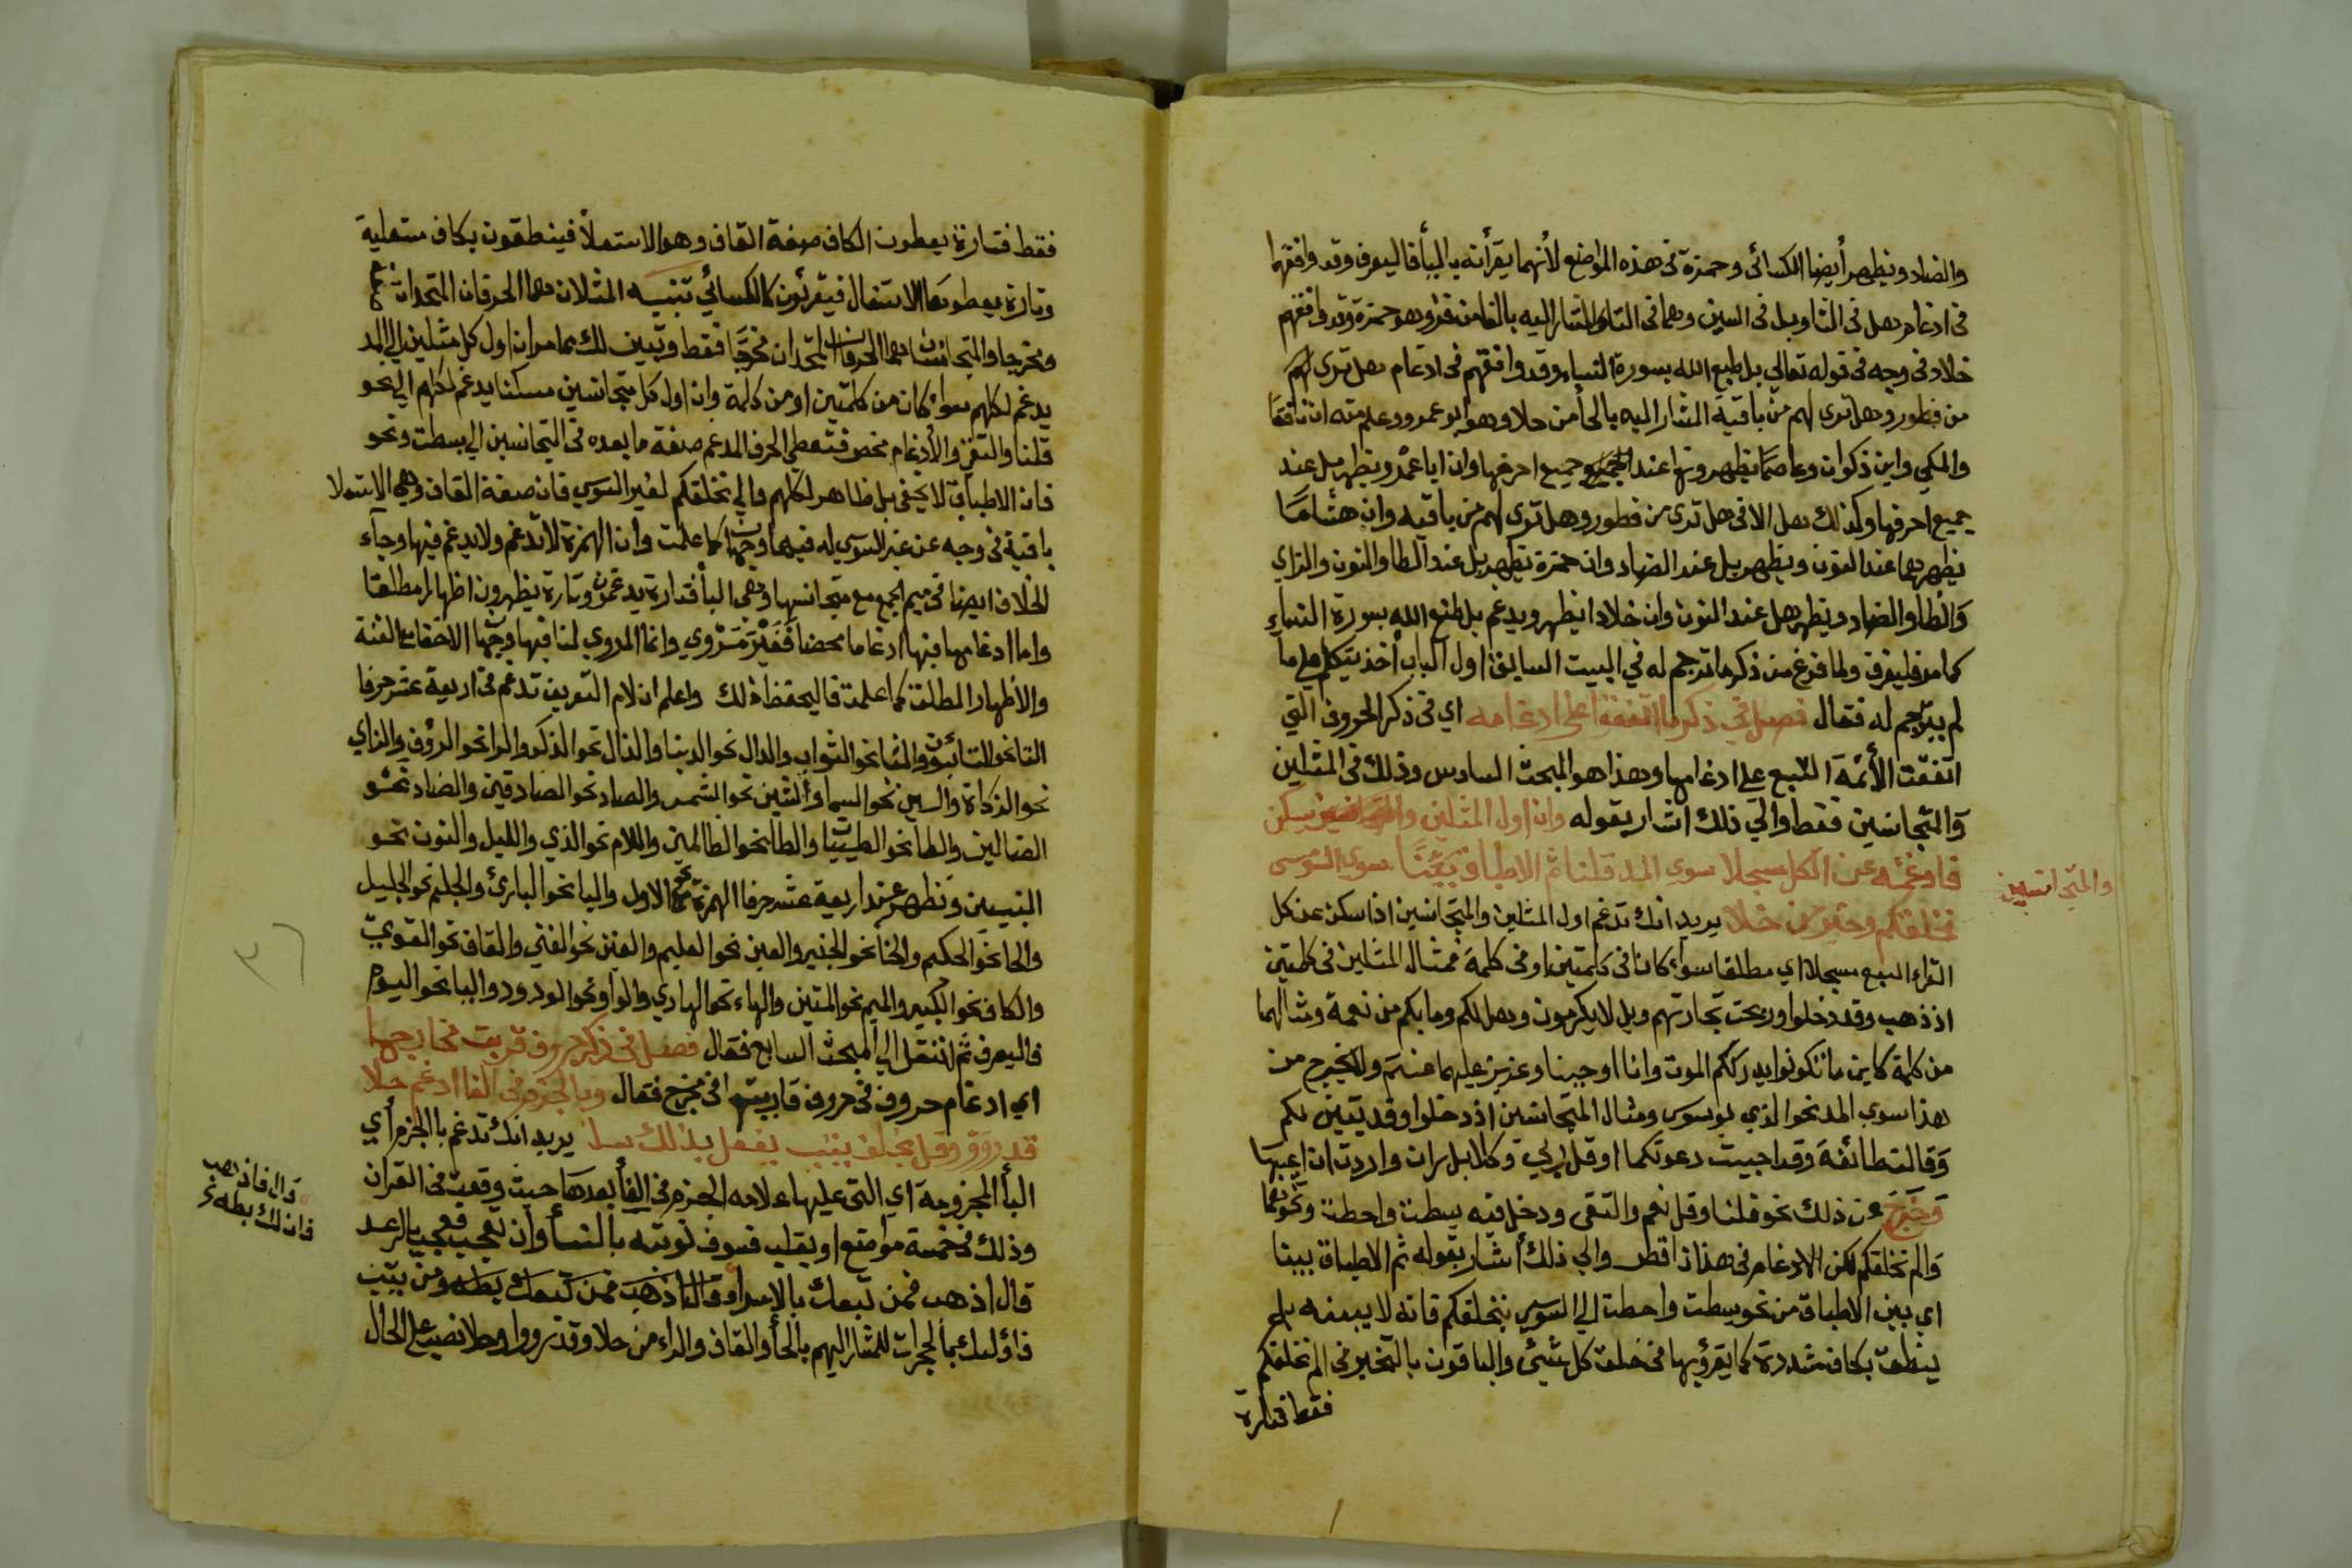 والضاد ويظهر أيضا الكسائى وحمزة فى هذه المواضع لأنهما يقرأنه باليأ فاليعرف وقد وافقهما
فى ادغام هل فى الثا وبل فى السين وهما فى التا والمشار اليه بالفا من فذ وهو حمزة وقد وافقهم
خلاد فى وجه فى قوله تعالى بل طبع الله بسورة النساء وقد وافقهم فى ادغام هل ترى لهم
من فطور وهل ترى لهم من باقية المشار اليه بالحأ من حلا وهو ابو عمرو وعلم منه ان نافعًا
والمكي وابن ذكوان وعاصمًا يظهرونها عند جميع احرفها وان ابا عمرو يظهر بل عند
جميع احرفها وكذلك هل الا فى هل ترى من فطور وهل ترى لهم من باقيه وان هشامًا
يظهرهما عند النون ويظهر بل عند الضاد وان حمزة يظهر بل عند الطا والنون والزاي
وَالظا والضاد ويظهر هل عند النون وان خلادا يظهر ويدغم بل طبع الله بسورة النساءِ
كما مر فليعرف ولما فرغ من ذكر ما ترجم له في البيت السابق اول الباب أخذ يتكلم على ما
لم يترجم له فقال فصل في ذكر ما اتفقوا على ادغامه اي فى ذكر الحروف التي
اتفقت الأئمة السبع على ادغامها وهذا هو المبحث السادس وذلك فى المثلين
وَالمتجانسين فقط والي ذلك اشار بقوله وان اول المثلين سكن
والمتجانسين
فادغمه عن الكل مسجلا سوى المد قلنا ثم الاطباق بيّنًا سوى السوسي
نخلقكم وخيرمن خلا يريد انك تدغم اول المثلين والمتجانسين اذا سكن عن كل
القراء السبع مسجلا اي مطلقا سواء كانا فى كلمتين او فى كلمة فمثال المثلين فى كلمتين
اذ ذهب وقد دخلوا وربحت تجارتهم وبل لا يكرمون وهل لكم وما بكم من نعمة ومثالهما
من كلمة كاينما تكونوا يدرككم الموت وانا اوجبنا وعزيز عليه ما عنتم ولا يخرج من
هذا سوى المد نحو الذي يوسوس ومثال المتجانسين اذ دخلوا وقد تبين لكم
وَقالت طائفة وقد اجيبت دعوتكما او قل ربي وكلا بل ران واردت ان اعيبهَا
وَخَرَجَ عن ذلك نحو قلنا وقل نعم والتقى ودخل فيه بسطت واحطت ونحوهما
وَالم نخلقكم لكن الادغام فى هذا ناقص والي ذلك أشار بقوله ثم الاطباق بينا
اي بين الاطباق من نحو بسطت واحطت الي السوسي بنخلقكم فانه لا يبينه بل
ينطق بكاف مشددة كما يقرؤ بها فى خلق كل شيئ والباقون بالتخير فى الم نخلقكم
فقط فتارة
فقط فتارة يعطون الكاف صفة القاف وهو الاستعلأ فينطقون بكاف مستعلية
وتارة يعطونها الاستفال فيقرئون كالكسائي تنبيه المثلان هما الحرفان المتحدان
ومخرجا والمتجانسان هما الحرفان المتحدان مخرجًا فقط وتبين لك مما مر ان اول كل مثلين الي المد
يدغم لكلهم سواء كان من كلمتين او من كلمة وان اول كل متجانسين مسكنا يدغم لكلهم الي نحو
قلنا والتقي والأدغام محض فتعطي الحرف المدغم صفة ما بعده فى المتجانسين الي بسطت ونحو
فان الاطباق لا يخفى بل ظاهر لكلهم والي نخلقكم لغير السوسي فان صفة القاف وهي الاستعلا
باقية فى وجه عن غير السوسي له فيهما وجهان كما علمت وان الهمزة لا تدغم ولا يدغم فيها وجآء
الخلاف ايضا فى ميم الجمع مع متجانسها وهى البأ فتارة يدغمون وتارة يظهرون اظهارا مطلقا
واما ادغامها فيها ادغاما محضا فغير مَرْوي وانما المروي لنا فيها وجها الاخفا مع الغنة
والأظهار المطلق كما علمت فاليحفظ ذلك واعلم ان لام التعريف تدغم فى اربعة عشر حرفا
التا نحو التائبون والثا نحو الثواب والدال نحو الدينا والذال نحو الذكر والرا نحو الرؤف والزاي
نحو الزكاة والسين نحو السما والشين نحو الشمس والصاد نحو الصادقين والضاد نحو
الضالين والطا نحو الطيبات والظا نحو الظالمين واللام نحو الذي والليل والنون نحو
النبيين وتظهر عند اربعة عشر حرفا الهمزة نحو الاول والبا نحو البارئ والجيم نحو الجليل
والحا نحو الحكيم والخا نحو الخبير والعين نحو العليم والغين نحو الغني والقاف نحو القويّ
والكاف نحو الكبير والميم نحو المتين والهاء نحو الهادي والواو نحو الودود واليا نحو اليوم
فاليعرف ثم انتقل الي المبحث السابع فقال فصل فى ذكر حروف قربت مخارجها
اي ادغام حروف فى حروف قاربتها فى مخرج فقال وبا الجزم فى الفا ادغم حلا
قد رووا وقل بخلف يتب يفعل بذلك سلا يريد انك تدغم بأ الجزم أي
البأ المجزومة اي التى عليها علامه الجزم فى الفأ بعدهَا حيث وقعت فى القران
وذلك فى خمسة مواضع او يغلب فسوف نؤتيه بالنسأ وان تعجب فعجب بالرعد
قال اذهب فمن تبعك بالاسرا وقال فاذهب فمن تبعك بطه ومن يتب
فاؤلئك بالحجرات للمشار اليهم بالحأ والقاف والراء من حلا وقد رووا وحلا نصب على الحال
قال فاذهب
فان لك بطه